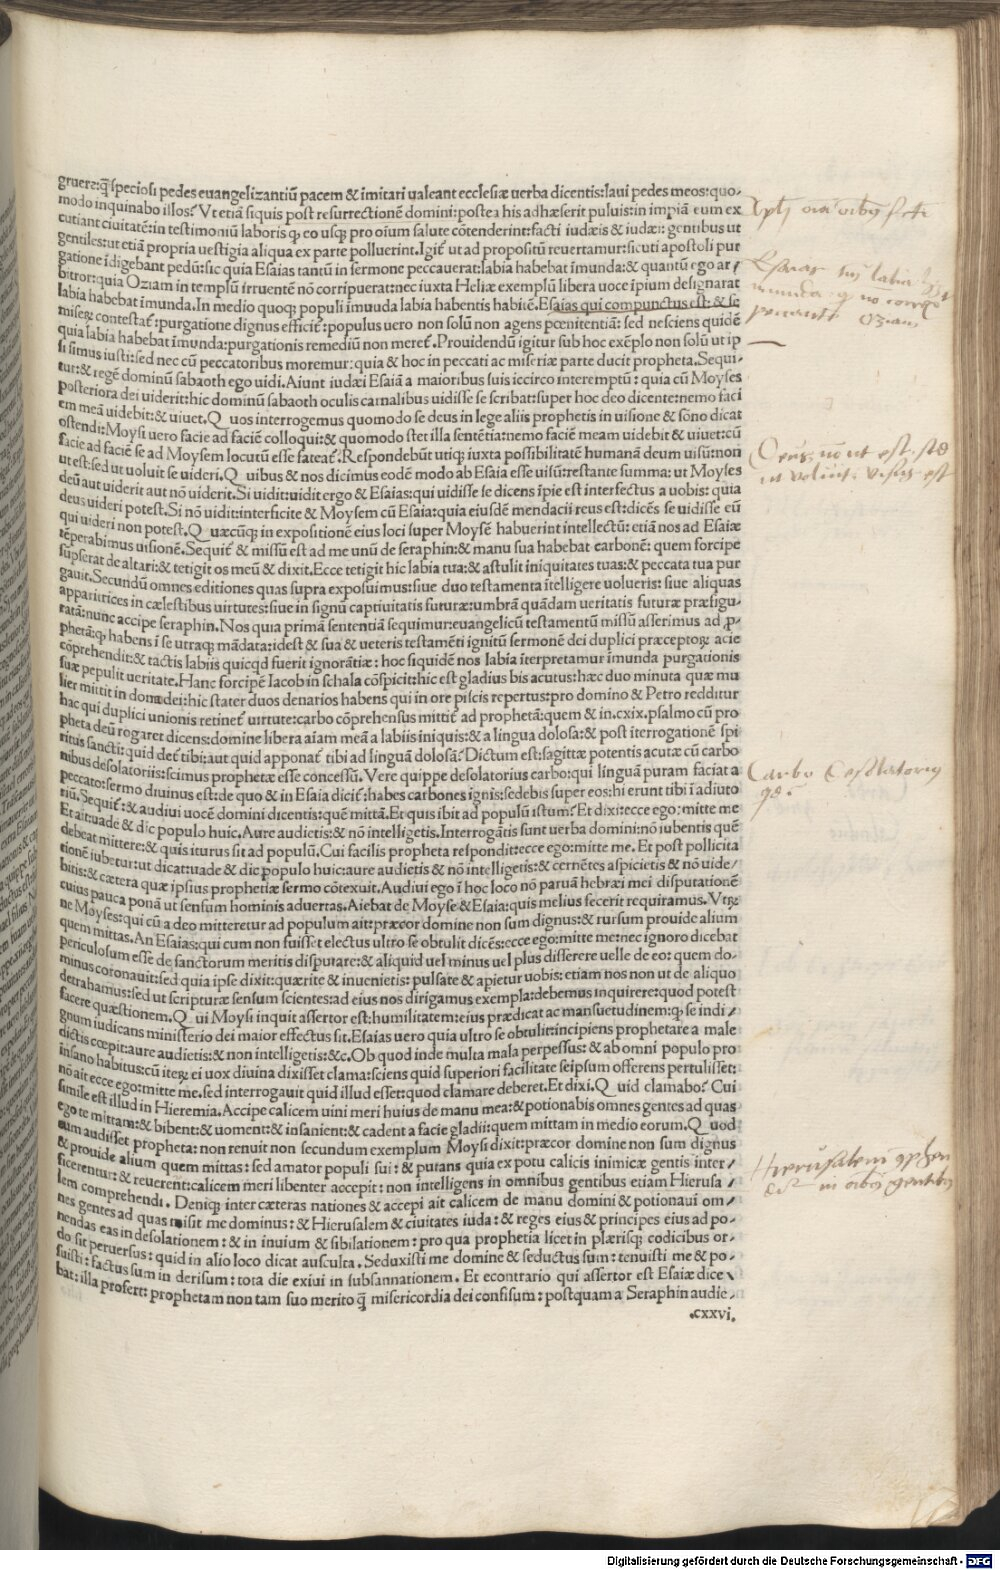 gruere: q̄ speciosi pedes euangelizantiū pacem & imitari ualeant ecclesiæ uerba dicentis: laui pedes meos: quo-
modo inquinabo illos? Vt etiā siquis post resurrectionē domini: postea his adhæserit puluis: in impiā eum ex
cutiant ciuitatē: in testimoniū laboris ꝙ eo usqꝫ pro oīum salute cōtenderint: facti iudæis & iudæi: gentibus ut
gentiles: ut etiā propria uestigia aliqua ex parte polluerint. Igiť ut ad propositū reuertamur: sicuti apostoli pur
gatione īdigebant pedū: sic quia Esaias tantū in sermone peccauerat: labia habebat īmunda: & quantū ego ar/
bitror: quia Oziam in templū irruentē nō corripuerat: nec iuxta Heliæ exemplū libera uoce īpium designarat
labia habebat īmunda. In medio quoqꝫ populi īmuuda labia habentis habitē. Esaias qui compunctus est: & se
miseꝝ contestaṫ: purgatione dignus efficiṫ: populus uero non solū non agens pœnitentiā: sed nesciens quidē
quia labia habebat īmunda: purgationis remediū non mereṫ. Prouidendū igitur sub hoc exēplo non solū ut ip
si simus iusti: sed nec cū peccatoribus moremur: quia & hoc in peccati ac miseriæ parte ducit propheta. Sequi-
tur: & regē dominū sabaoth ego uidi. Aiunt iudæi Esaiā a maioribus suis iccirco interemptū: quia cū Moyses
posteriora dei uiderit: hic dominū sabaoth oculis carnalibus uidisse se scribat: super hoc deo dicente: nemo faci
em meā uidebit: & uiuet. Quos interrogemus quomodo se deus in lege aliis prophetis in uisione & sōno dicat
ostendi: Moysi uero facie ad faciē colloqui: & quomodo stet illa sentētia: nemo faciē meam uidebit & uiuet: cū
facie ad faciē se ad Moysem locutū esse fateaṫ. Respondebūt utiqꝫ iuxta possibilitatē humanā deum uisū: non
ut est: sed ut uoluit se uideri. Quibus & nos dicimus eodē modo ab Esaia esse uisū: restante summa: ut Moyses
deū aut uiderit aut nō uiderit. Si uidit: uidit ergo & Esaias: qui uidisse se dicens īpie est interfectus a uobis: quia
deus uideri potest. Si nō uidit: interficite & Moysem cū Esaia: quia eiusdē mendacii reus est: dicēs se uidisse eū
qui uideri non potest. Quæcūqꝫ in expositionē eius loci super Moysē habuerint intellectū: etiā nos ad Esaiæ
tēperabimus uisionē. Sequiṫ & missū est ad me unū de seraphin: & manu sua habebat carbonē: quem forcipe
sūpserat de altari: & tetigit os meū & dixit. Ecce tetigit hic labia tua: & astulit iniquitates tuas: & peccata tua pur
gauit. Secundū omnes editiones quas supra exposuimus: siue duo testamenta ītelligere uolueris: siue aliquas
apparitrices in cælestibus uirtutes: siue in signū captiuitatis futuræ: umbrā quādam ueritatis futuræ præfigu-
ratā: nunc accipe seraphin. Nos quia primā sententiā sequimur: euangelicū testamentū missū asserimus ad ꝓ-
phetā: ꝙ habens ī se utraqꝫ mādata: idest & sua & ueteris testamēti ignitū sermonē dei duplici præceptoꝝ acie
cōprehendit: & tactis labiis quicqd fuerit ignorātiæ: hoc siquidē nos labia īterpretamur īmunda purgationis
suæ pepulit ueritate. Hanc forcipē Iacob in schala cōspicit: hic est gladius bis acutus: hæc duo minuta quæ mu
lier mittit in dona dei: hic stater duos denarios habens qui in ore piscis repertus: pro domino & Petro redditur
hac qui duplici unionis retineṫ uirtute: carbo cōprehensus mittiṫ ad prophetā: quem & in .cxix. psalmo cū pro
pheta deū rogaret dicens: domine libera aīam meā a labiis iniquis: & a lingua dolosa: & post iterrogationē spi
ritus sancti: quid deṫ tibi: aut quid apponaṫ tibi ad linguā dolosā? Dictum est: sagittæ potentis acutæ cū carbo
nibus desolatoriis: scimus prophetæ esse concessū. Vere quippe desolatorius carbo: qui linguā puram faciat a
peccato: sermo diuinus est: de quo & in Esaia diciṫ: habes carbones ignis: sedebis super eos: hi erunt tibi ī adiuto
riū. Sequiṫ: & audiui uocē domini dicentis: quē mittā. Et quis ibit ad populū istum? Et dixi: ecce ego: mitte me
Et ait: uade & dic populo huic. Aure audietis: & nō intelligetis. Interrogātis sunt uerba domini: nō iubentis quē
debeat mittere: & quis iturus sit ad populū. Cui facilis propheta respondit: ecce ego: mitte me. Et post pollicita
tionē iubetur: ut dicat: uade & dic populo huic: aure audietis & nō intelligetis: & cernētes aspicietis & nō uide/
bitis: & cætera quæ ipsius prophetiæ sermo cōtexuit. Audiui ego ī hoc loco nō paruā hebræi mei disputationē
cuius pauca ponā ut sensum hominis aduertas. Aiebat de Moyse & Esaia: quis melius fecerit requiramus. Vtꝝ
ne Moyses: qui cū a deo mitteretur ad populum ait: præcor domine non sum dignus: & rursum prouide alium
quem mittas. An Esaias: qui cum non fuisset electus ultro se obtulit dicēs: ecce ego: mitte me: nec ignoro dicebat
periculosum esse de sanctorum meritis disputare: & aliquid uel minus uel plus disserere uelle de eo: quem do-
minus coronauit: sed quia ipse dixit: quærite & inuenietis: pulsate & apietur uobis: etiam nos non ut de aliquo
detrahamus: sed ut scripturæ sensum scientes: ad eius nos dirigamus exempla: debemus inquirere: quod potest
facere quæstionem. Qui Moysi inquit assertor est: humilitatem: eius prædicat ac mansuetudinem: ꝙ se indi/
gnum iudicans ministerio dei maior effectus sit. Esaias uero quia ultro se obtulit: incipiens prophetare a male
dictis cœpit: aure audietis: & non intelligetis: &c. Ob quod inde multa mala perpessus: & ab omni populo pro
īnsano habitus: cū iteꝝ ei uox diuina dixisset clama: sciens quid superiori facilitate seipsum offerens pertulisset:
nō ait ecce ego: mitte me. sed interrogauit quid illud esset: quod clamare deberet. Et dixi. Quid clamabo? Cui
simile est illud in Hieremia. Accipe calicem uini meri huius de manu mea: & potionabis omnes gentes ad quas
ego te mittam: & bibent: & uoment: & insanient: & cadent a facie gladii: quem mittam in medio eorum. Quod
cum audisset propheta: non renuit non secundum exemplum Moysi dixit: præcor domine non sum dignus
& prouide alium quem mittas: sed amator populi sui: & putans quia ex potu calicis inimicæ gentis inter/
ficerentur: & reuerent: calicem meri libenter accepit: non intelligens in omnibus gentibus etiam Hierusa/
lem comprehendi. Deniqꝫ inter cæteras nationes & accepi ait calicem de manu domini & potionaui om-
nes gentes ad quas misit me dominus: & Hierusalem & ciuitates iuda: & reges eius & principes eius ad po-
nendas eas in desolationem: & in inuium & sibilationem: pro qua prophetia licet in plærisqꝫ codicibus or-
do sit peruersus: quid in alio loco dicat ausculta. Seduxisti me domine & seductus sum: tenuisti me & po-
tuisti: factus sum in derisum: tota die exiui in subsannationem. Et econtrario qui assertor est Esaiæ dice
bat: illa profert: prophetam non tam suo merito ꝗ̄ misericordia dei confisum: postquam a Seraphin audie-
.cxxvi.
Esaias īn labia
munda
Oziam
Deus nō ut est sed
ut voluit visus est
Carbo Desolatorius
Hierusalem
in oībus gentibus
Digitalisierung gefördert durch die Deutsche Forschungsgemeinschaft - DFG